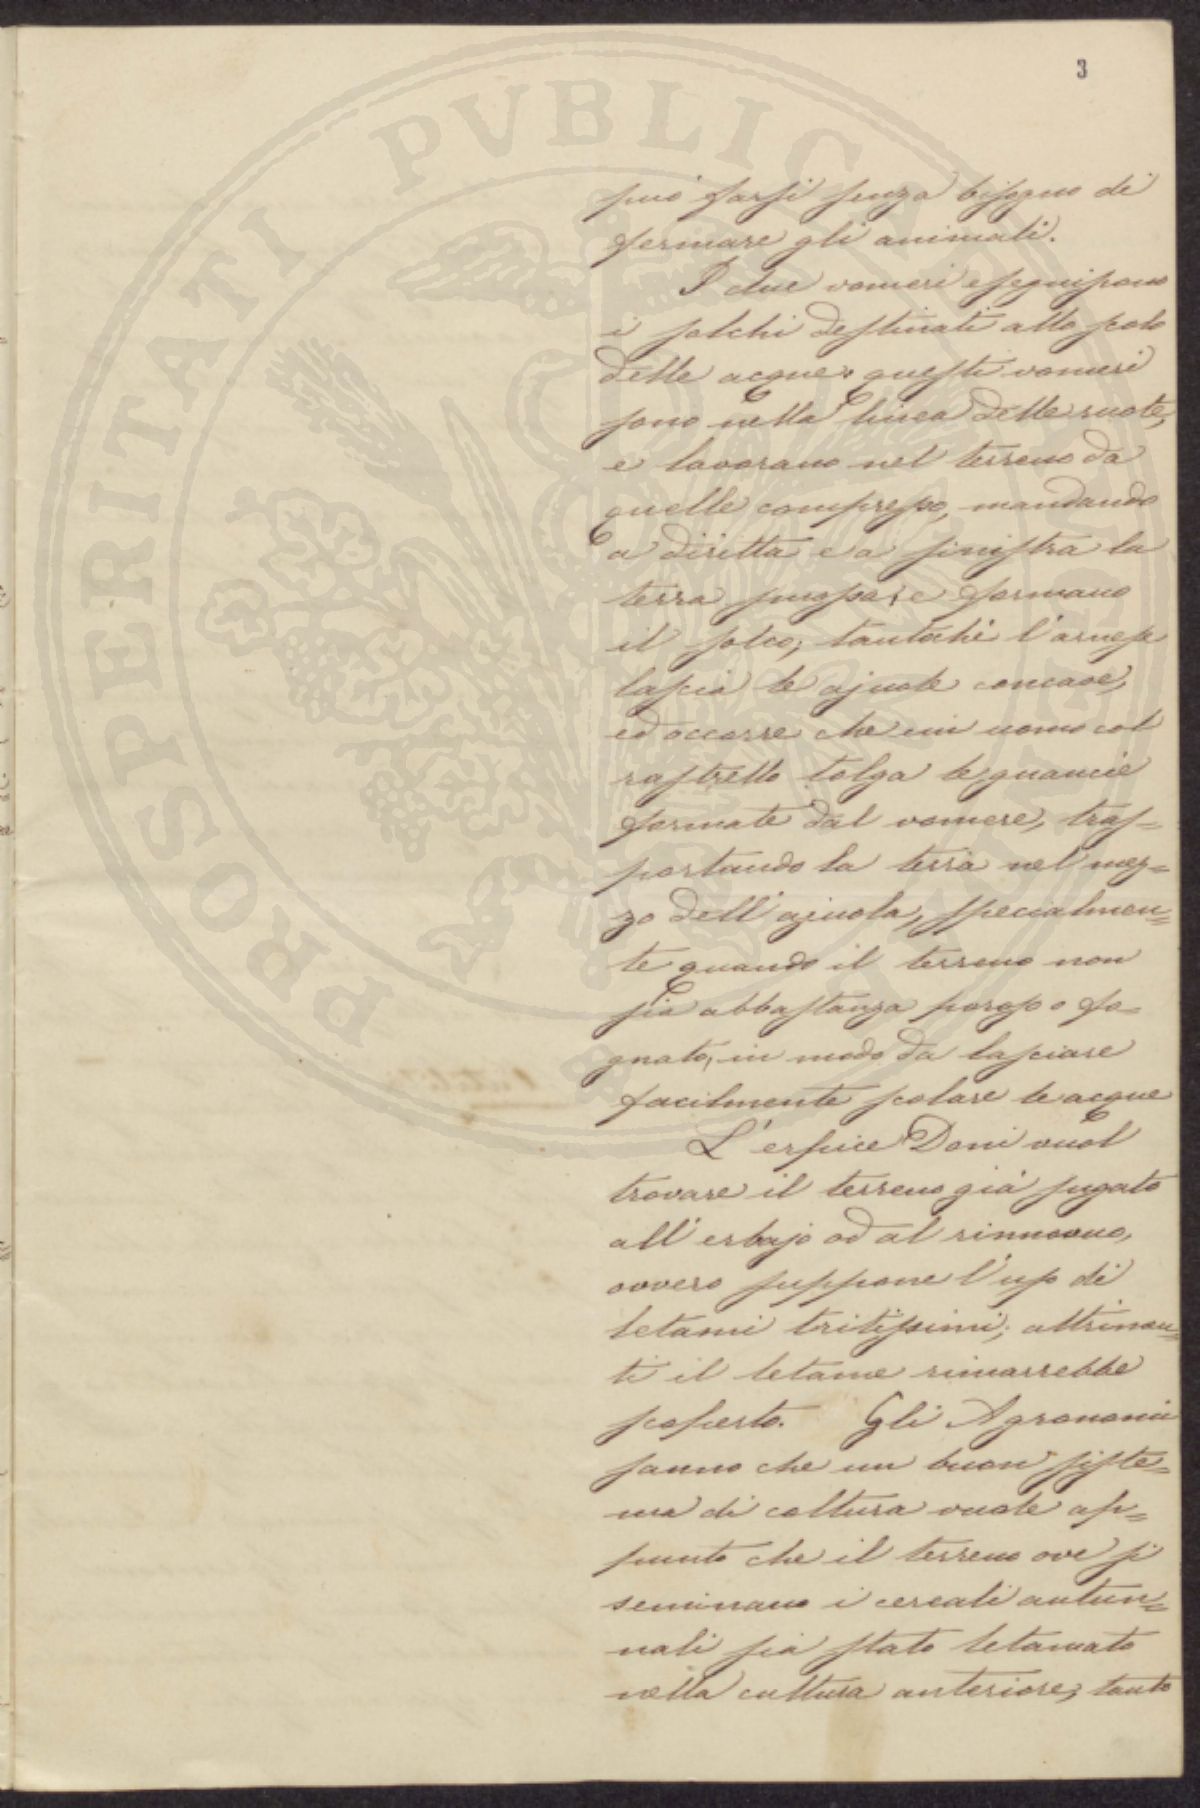 3
PROSPERITATI PVBLICAE
può farsi senza bisogno di
fermare gli animali.
I due vomeri eseguiscono
i solchi destinati allo scolo
delle acque; questi vomeri
sono nella linea delle ruote,
e lavorano nel terreno da
quelle compresso, mandando
a diritta e a sinistra la
terra smossa, e formano
il solco; tantochè l'arnese
lascia le ajuole concave,
ed occorre che un uomo col
rastrello tolga le guancie
formate dal vomere, tras=
portando la terra nel mez=
zo dell'ajuola, specialmen=
te quando il terreno non
sia abbastanza poroso o fo=
gnato, in modo da lasciare
facilmente scolare le acque
L'erpice Doni vuol
trovare il terreno già sugato
all'erbajo od al rinnuovo,
ovvero suppone l'uso di
letami tritissimi; altrimen=
ti il letame rimarrebbe
scoperto. Gli Agronomi
sanno che un buon siste=
ma di coltura vuole ap=
punto che il terreno ove si
seminano i cereali autun=
nali sia stato letamato
nella cultura anteriore; tanto